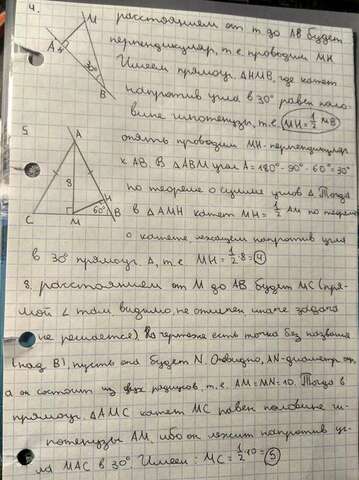 4.
M
A
B
30°
расстоянием от т. до AB будет
перпендикуляр, т.е. проводим MH
Имеем прямоуг. ΔHMB, где катет
напротив угла в 30° равен поло-
вине гипотенузы, т.е. MH = 1/2 MB
5.
A
8
H
60°
C
M
B
опять проводим MH-перпендикуляр
к AB. В ΔABM угол A = 180° - 90° - 60° = 30°
по теореме о сумме углов Δ. Тогда
в ΔAMH катет MH = 1/2 AM по теореме
о катете, лежащем напротив угла
в 30° прямоуг. Δ, т.е. MH = 1/2 · 8 = 4
8. расстоянием от M до AB будет MC (пря-
мой ∠ там, видимо, не отмечен иначе задача
не решается) На чертеже есть точка без названия
(над B), пусть она будет N. Очевидно, AN-диаметр окр,
а он состоит из двух радиусов, т.е. AM = MN = 10. Тогда в
прямоуг. ΔAMC катет MC равен половине ги-
потенузы AM, ибо он лежит напротив уг-
ла MAC в 30°. Имеем: MC = 1/2 · 10 = 5